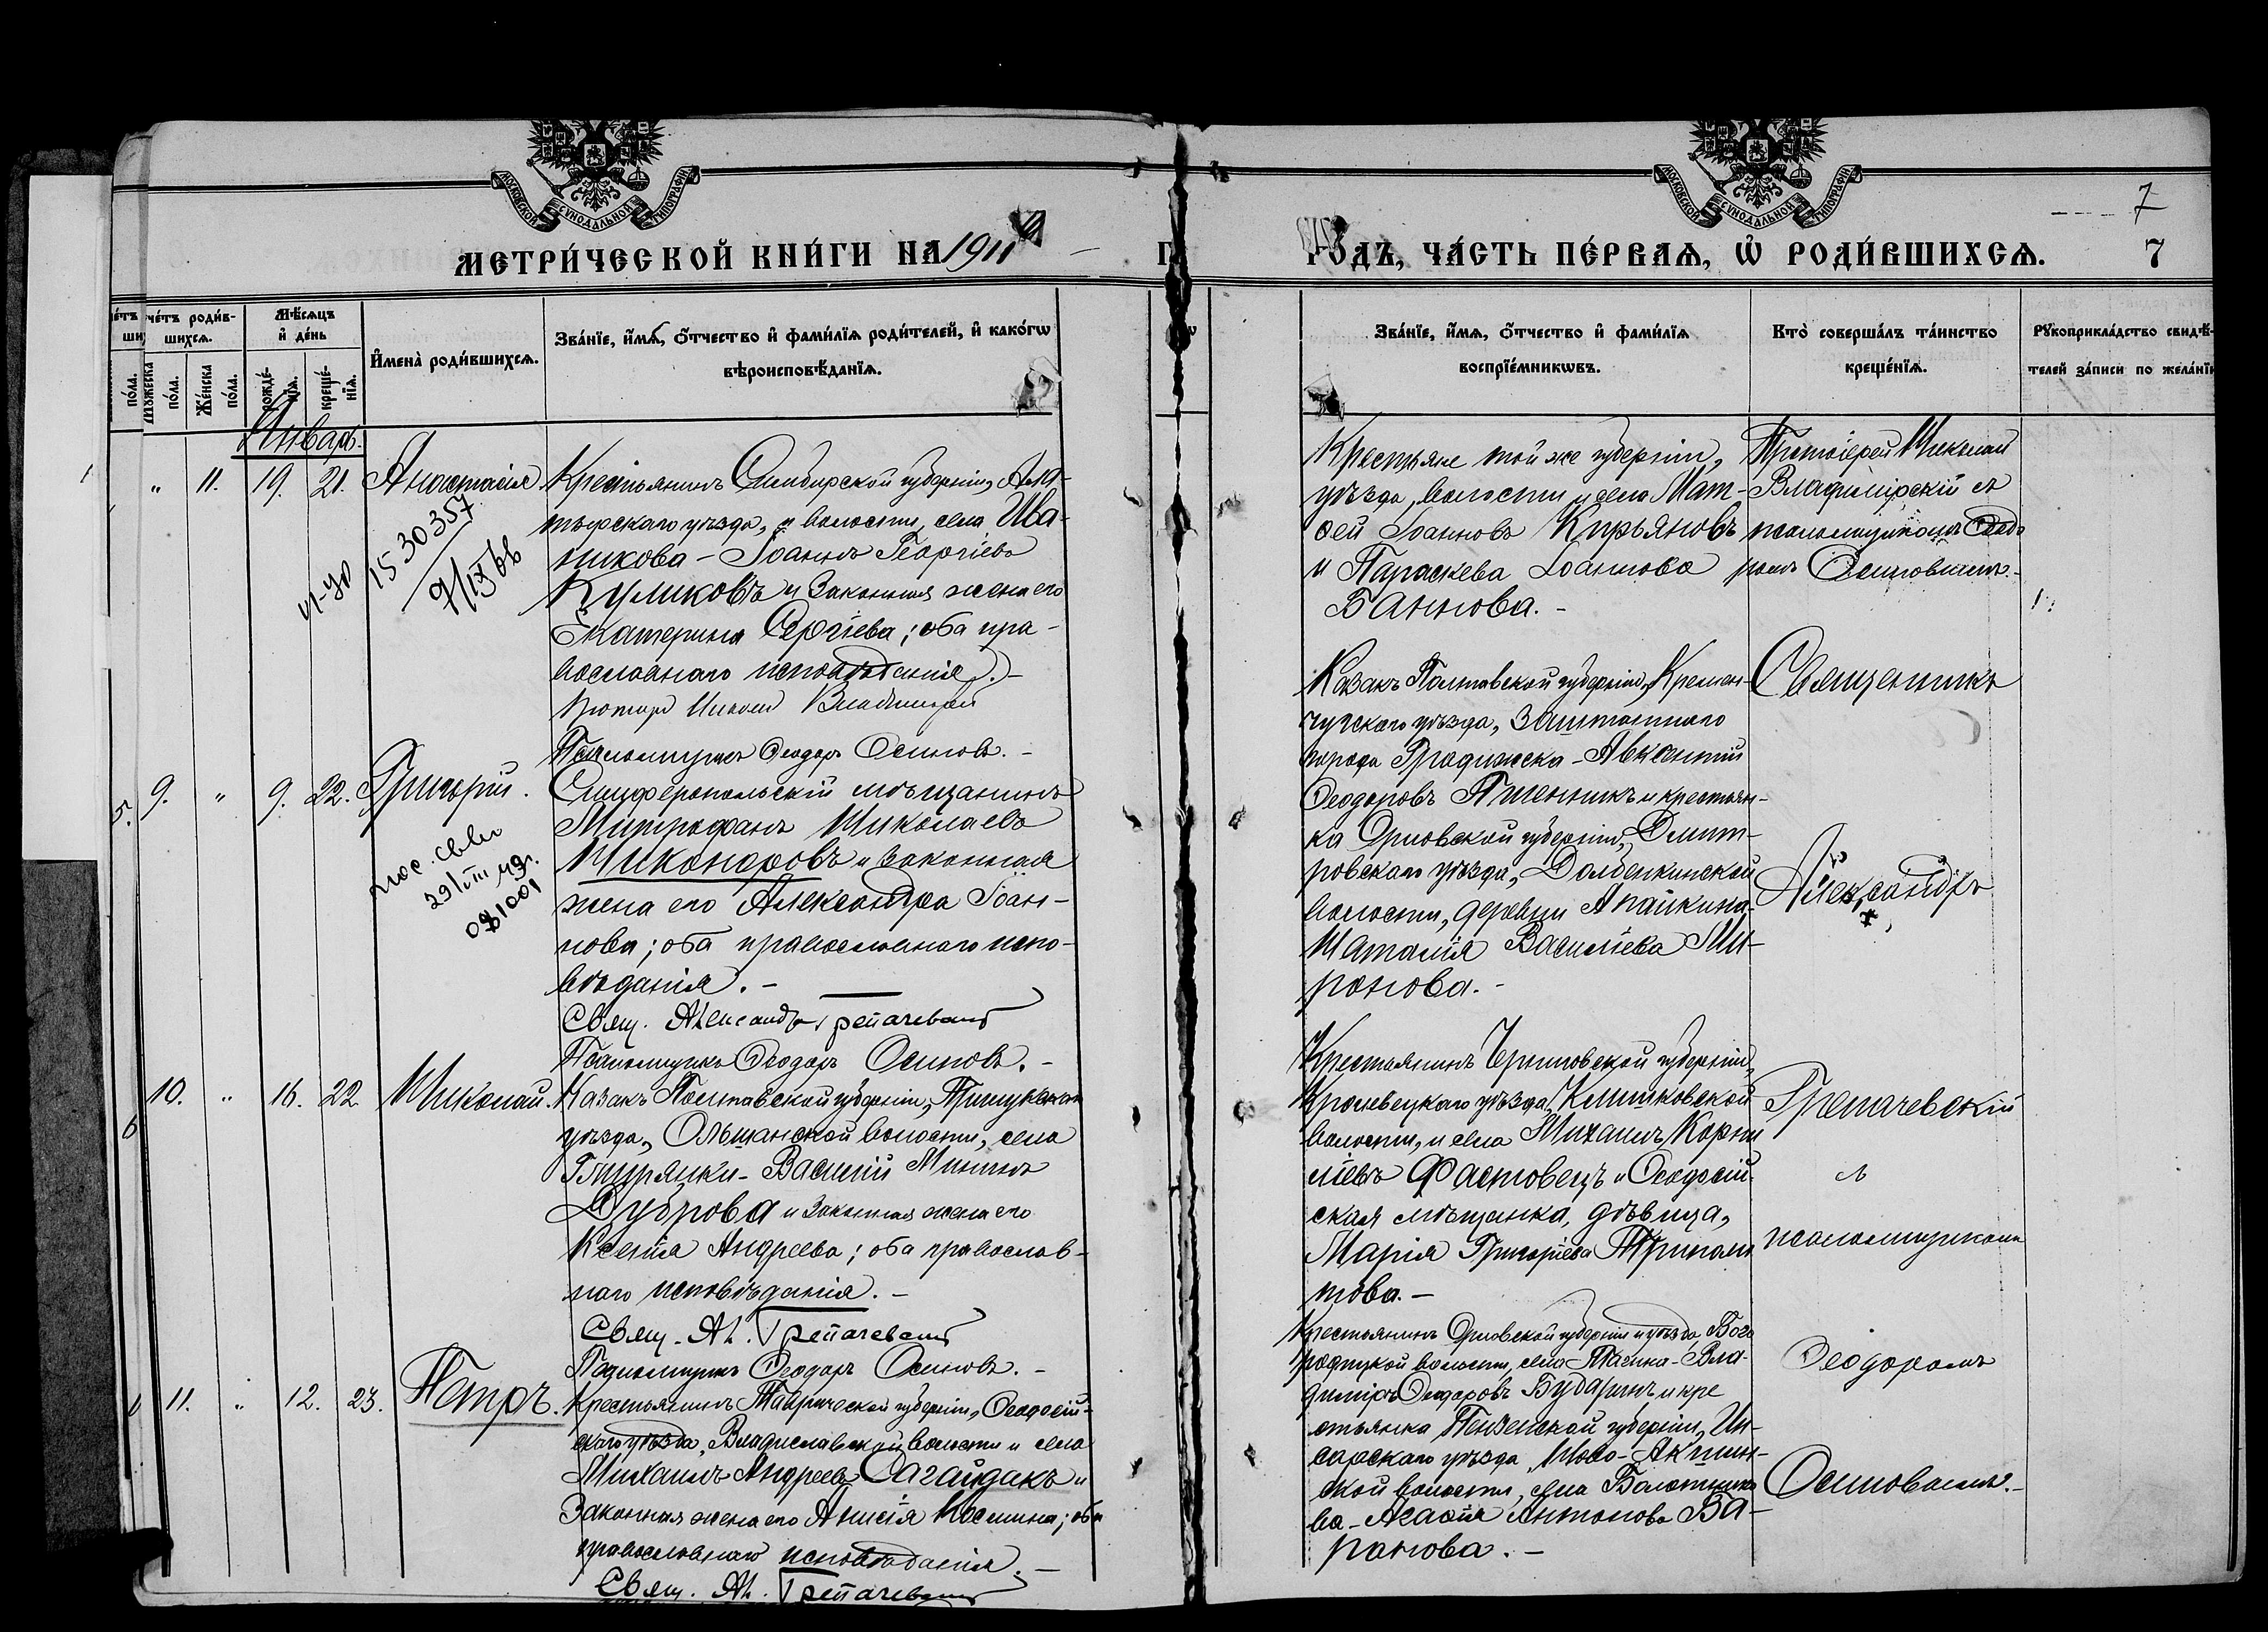 МОСКОВСКОЙ СѴНОДАЛЬНОЙ ТИПОГРАФІИ
МОСКОВСКОЙ СѴНОДАЛЬНОЙ ТИПОГРАФІИ
7
МЕТРИ́ЧЕСКОЙ КНИ́ГИ НА 1911
ГО́ДЪ, ЧА́СТЬ ПЕ́РВАѦ, Ѡ҆ РОДИ́ВШИХСѦ.
7
Сче́тъ роди́в-
шихсѧ.
Мꙋ́жеска по́ла.
Же́нска по́ла.
Мѣ́сѧцъ
и҆ де́нь
рожде́-
нїѧ.
креще́-
нїѧ.
И҆мена̀ роди́вшихсѧ.
Зва́нїе, и҆́мѧ, ѻ҆́тчество и҆ фами́лїѧ роди́телей, и҆ како́гѡ
вѣроисповѣ́данїѧ.
Зва́нїе, и҆́мѧ, ѻ҆́тчество и҆ фами́лїѧ
воспрїе́мникѡвъ.
Кто̀ соверша́лъ та́инство
креще́нїѧ.
Рꙋкоприкла́дство свидѣ́-
телей за́писи по жела́нїю
Январь.
„ 11. 19. 21. Анастасія
1530357
9/IX 66
Крестьянинъ Симбирской губерніи, Ала-
тырскаго уѣзда, и волости, села Ива-
никова - Іоаннъ Георгіевъ
Куликовъ и законная жена его
Екатерина Сергіева; оба пра-
вославнаго исповѣданія.-
Псаломщикъ Ѳеодоръ Осиповъ.-
Крестьяне той же губерніи,
уѣзда, волости и села Мат-
ѳей Іоанновъ Кирьяновъ
и Параскева Іоаннова
Баннова.-
Протоіерей Николай
Владимірскій съ
псаломщикомъ Ѳеодо
ромъ Осиповымъ.-
5. 9. „ 9. 22. Григорій.
29/VIII 49г.
081001
Симферопольскій мѣщанинъ
Митрофанъ Николаевъ
Никаноровъ и законная
жена его Александра Іоан-
нова; оба православнаго испо-
вѣданія.-
Свящ. Александръ Грепачевскій
Псаломщикъ Ѳеодоръ Осиповъ.-
Казакъ Полтавской губерніи, Кремен-
чугскаго уѣзда, заштатнаго
города Градижска - Авксентій
Ѳеодоровъ Пшенникъ и крестьян-
ка Орловской губерніи, Дмит-
ровскаго уѣзда, Долбенкинской
волости, деревни Апайкина-
Наталія Василіева Ми-
ронова.-
Священникъ
Александръ
Грепачевскій
съ
псаломщикомъ
Ѳеодоромъ
Осиповымъ.-
6 10. „ 16. 22 Николай.
Казакъ Полтавской губерніи, Прилукскаго
уѣзда, Ольшанской волости, села
Василій Мининъ
Дуброва и законная жена его
Ксенія Андреева; оба православ-
наго исповѣданія.-
Свящ. Ал. Грепачевскій
Псаломщикъ Ѳеодоръ Осиповъ.-
Крестьянинъ Черниговской губерніи,
Кролевецкаго уѣзда, Клишковской
волости, и села Михаилъ Корни
ліевъ Фастовецъ и Ѳеодосій-
ская мѣщанка, дѣвица,
Марія Григоріева Триполи
това.-
11. „ 12. 23. Петръ.
Крестьянинъ Таврической губерніи, Ѳеодосій-
скаго уѣзда, Владиславской волости и села
Михаилъ Андреевъ Сагайдакъ и
законная жена его Анисія Космина; оба
православнаго исповѣданія.-
Свящ. Ал. Грепачевскій
Крестьянинъ Орловской губерніи и уѣзда, Бого
родицкой волости, села Вла-
диміръ Ѳеодоровъ Бударинъ и кре
стьянка Пензенской губерніи, Ин-
сарскаго уѣзда, Ново-Акшин-
ской волости, села Болотнико
ва - Агаѳія Антонова Ба-
ранова.-